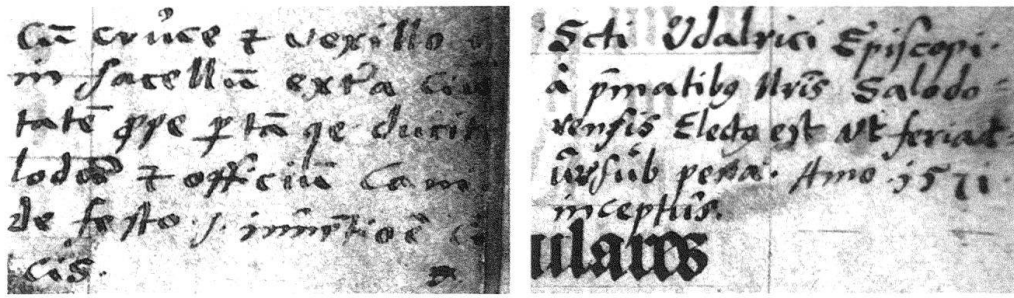 Cū crúce & vexillo
in sacellū extra Ciui
tatē ꝓpe ꝑtā qe ducit
& officiū Cam
de festo s. inuētiōe
cis.
Scti Vdalrici Episcopi.
à p̄matibꝫ Vrīs Salodo-
rensis Electꝫ est vt feriat-
sub pena. Anno 1571.
inceptús.